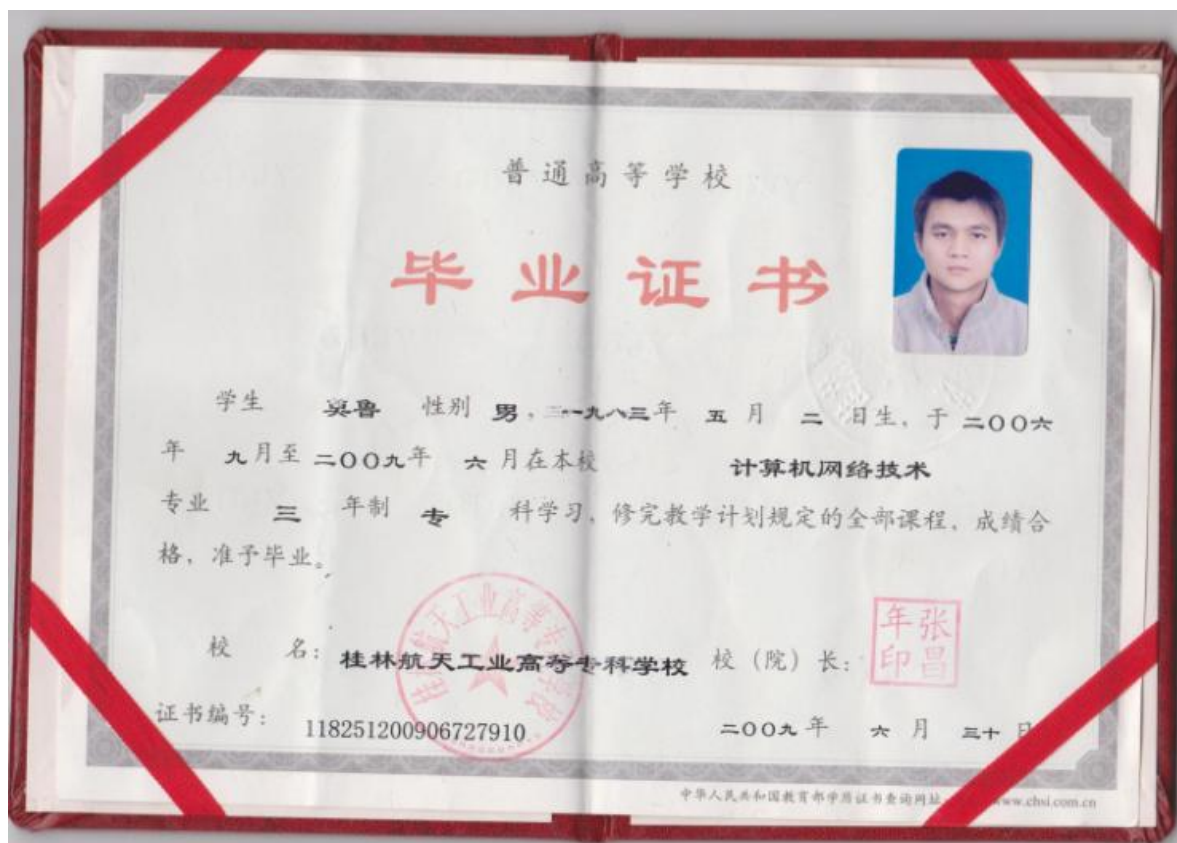 普通高等学校
毕业证书
学生 吴鲁 性别 男，一九八三年 五 月 二 日生，于 二〇〇六
年 九月至 二〇〇九年 六 月在本校 计算机网络技术
专业 三 年制 专 科学习，修完教学计划规定的全部课程，成绩合
格，准予毕业。
校 名：桂林航天工业高等专科学校 校（院）长：张昌年印
桂林航天工业高等专科学校
证书编号：118251200906727910 二〇〇九年 六 月 三十 日
中华人民共和国教育部学历证书查询网址 www.chsi.com.cn